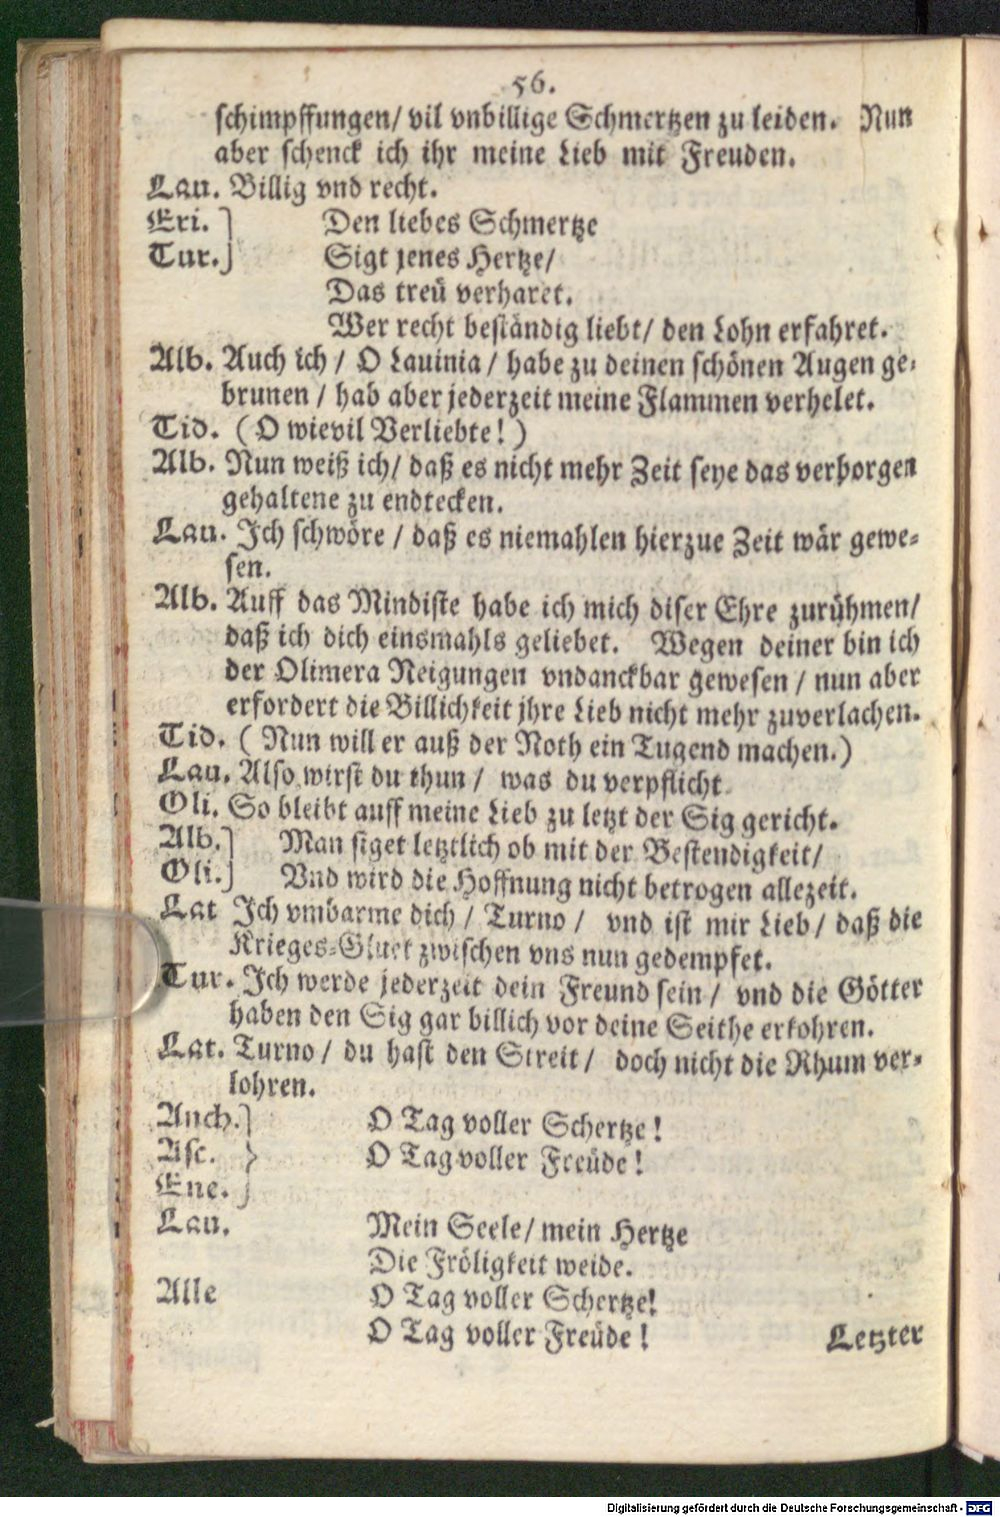 56.
schimpffungen/ vil vnbillige Schmertzen zu leiden. Nun
aber schenck ich ihr meine Lieb mit Freuden.
Lau. Billig vnd recht.
Eri. } Den liebes Schmertze
Tur. } Sigt jenes Hertze/
Das treü verharet.
Wer recht beständig liebt/ den Lohn erfahret.
Alb. Auch ich / O Lauinia / habe zu deinen schönen Augen ge-
brunen / hab aber jederzeit meine Flammen verhelet.
Tid. ( O wievil Verliebte! )
Alb. Nun weiß ich/ daß es nicht mehr Zeit seye das verborgen
gehaltene zu endtecken.
Lau. Ich schwöre / daß es niemahlen hierzue Zeit wär gewe-
sen.
Alb. Auff das Mindiste habe ich mich diser Ehre zurühmen/
daß ich dich einsmahls geliebet. Wegen deiner bin ich
der Olimera Neigungen vndanckbar gewesen / nun aber
erfordert die Billichkeit jhre Lieb nicht mehr zuverlachen.
Tid. ( Nun will er auß der Noth ein Tugend machen.)
Lau. Also wirst du thun / was du verpflicht.
Oli. So bleibt auff meine Lieb zu letzt der Sig gericht.
Alb. } Man siget letztlich ob mit der Bestendigkeit/
Oli. } Vnd wird die Hoffnung nicht betrogen allezeit.
Lat Ich vmbarme dich / Turno / vnd ist mir Lieb / daß die
Krieges-Gluet zwischen vns nun gedempfet.
Tur. Ich werde jederzeit dein Freund sein / vnd die Götter
haben den Sig gar billich vor deine Seithe erkohren.
Lat. Turno / du hast den Streit / doch nicht die Rhum ver-
lohren.
Anch. } O Tag voller Schertze !
Asc. } O Tag voller Freüde !
Ene. }
Lau. Mein Seele/ mein Hertze
Die Fröligkeit weide.
Alle O Tag voller Schertze!
O Tag voller Freüde !
Letzter
Digitalisierung gefördert durch die Deutsche Forschungsgemeinschaft - DFG